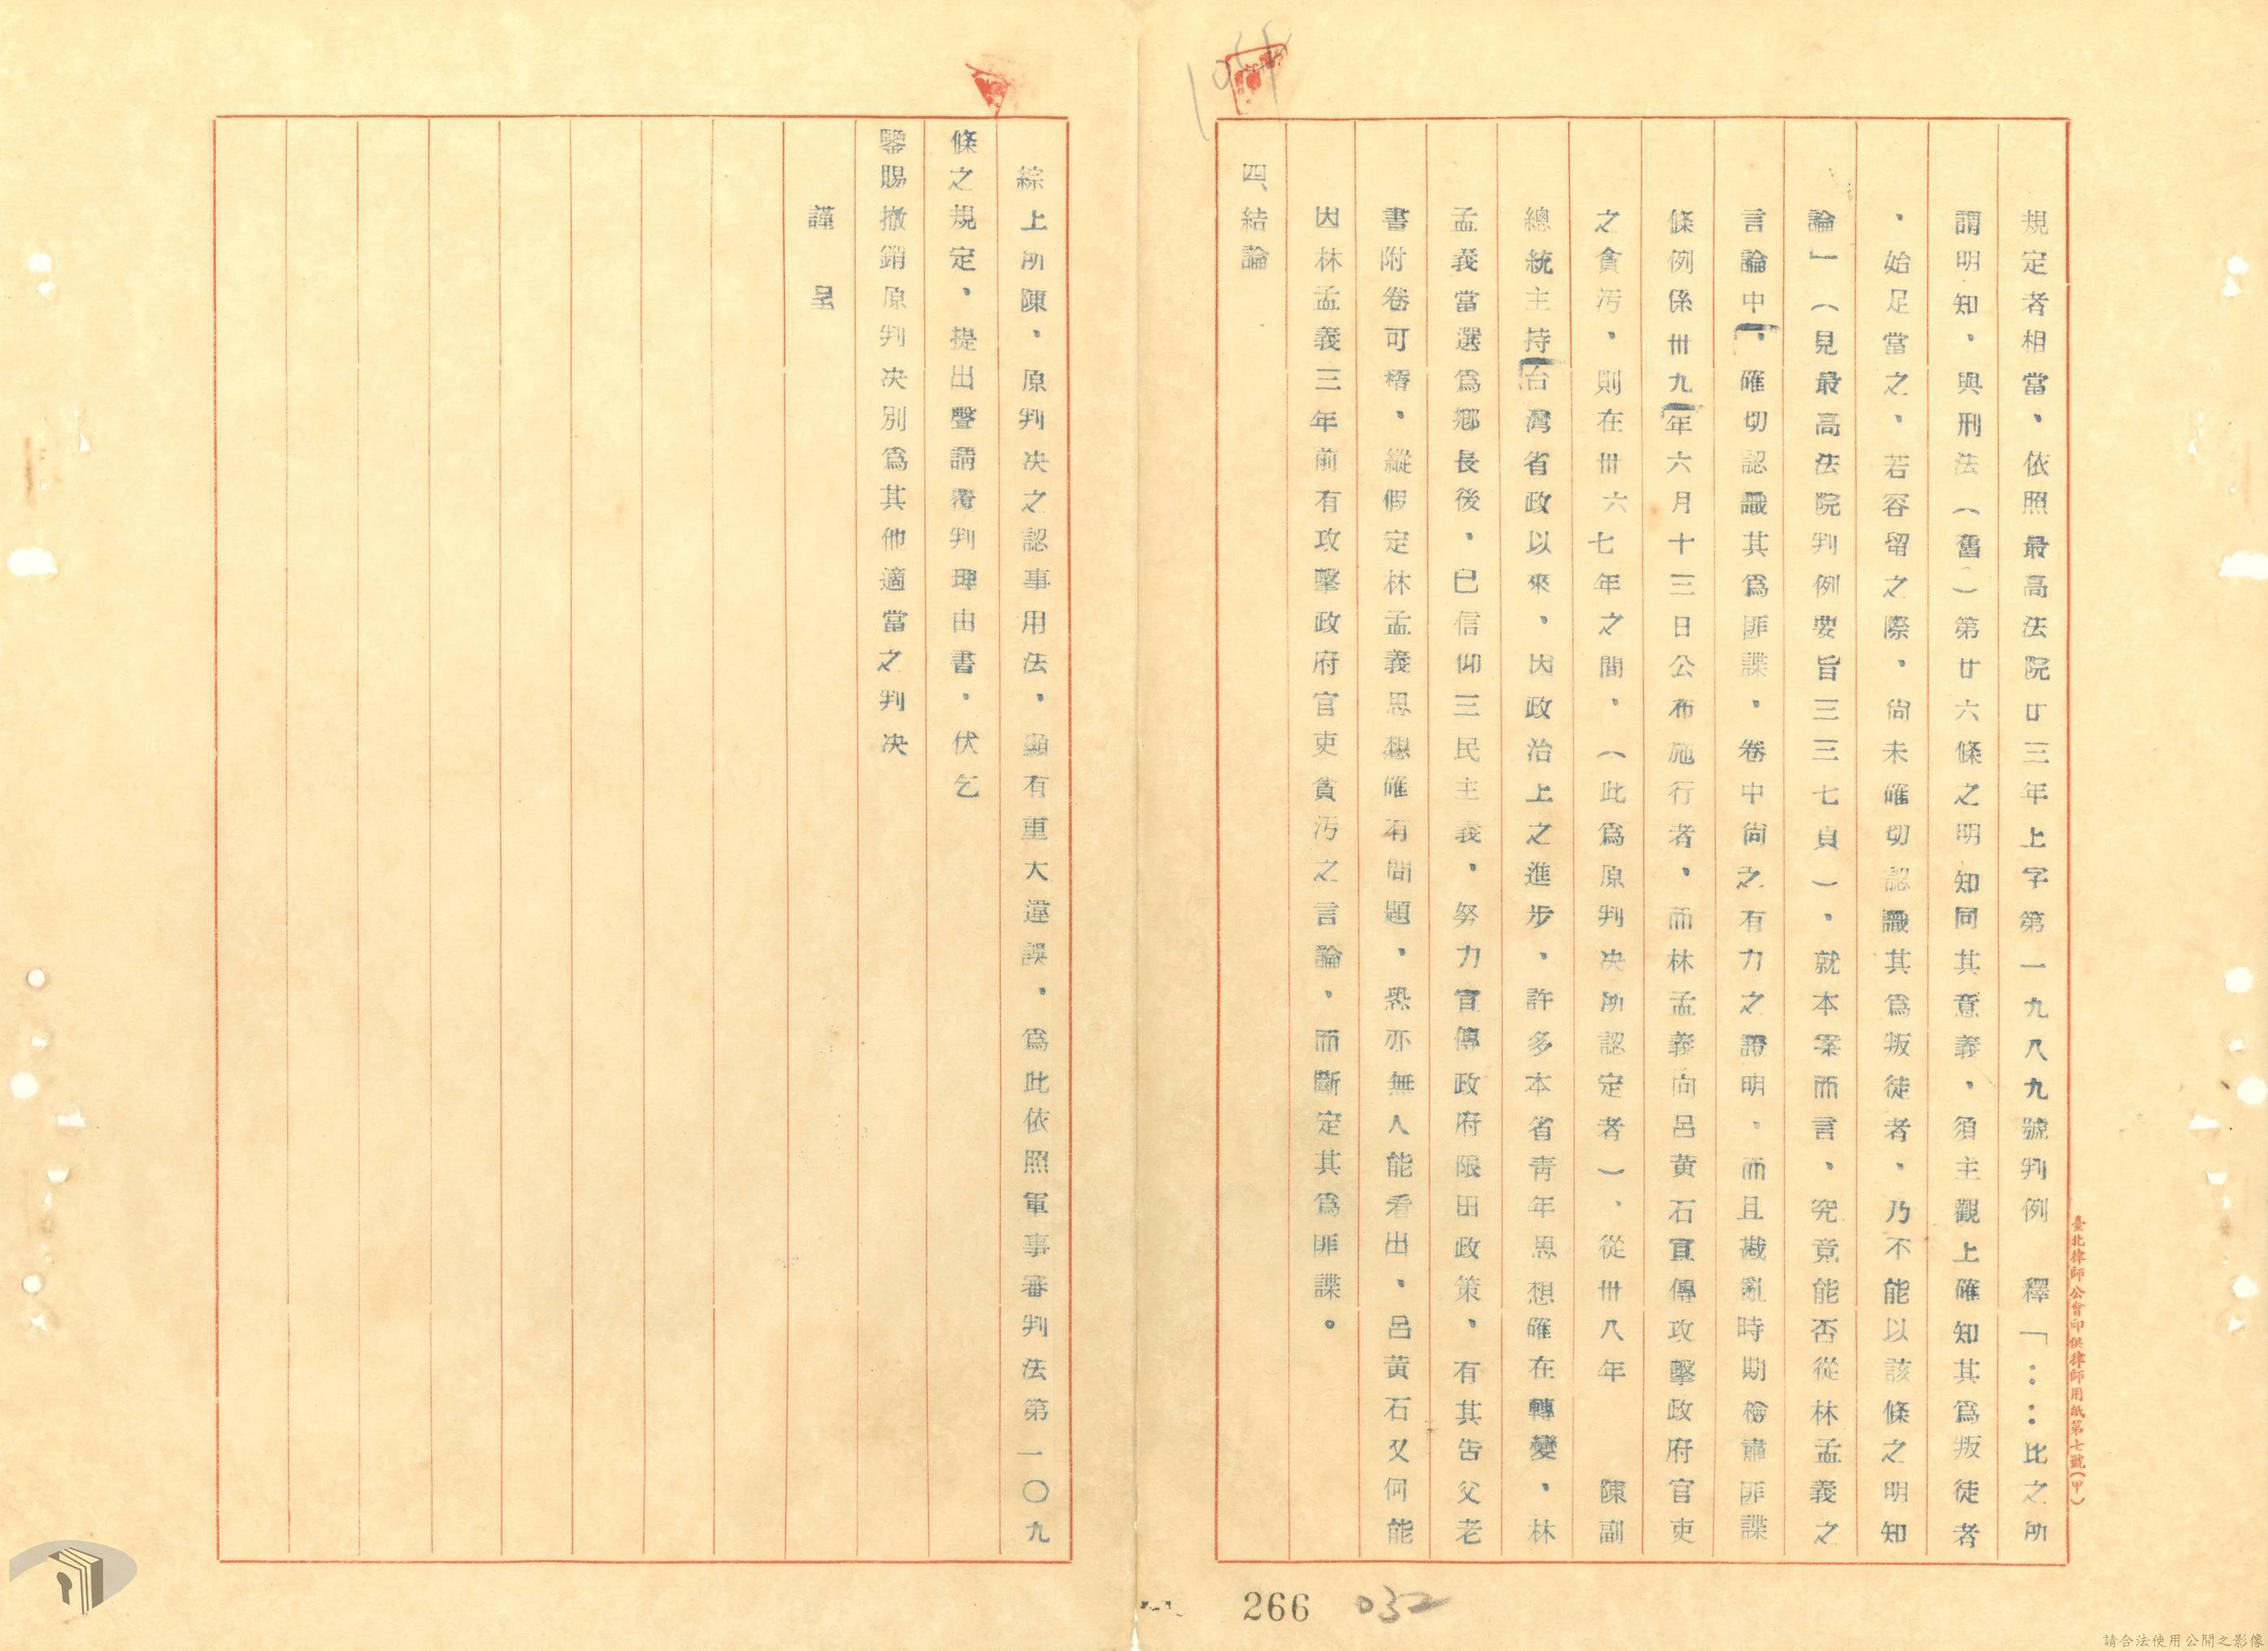 規定者相當、依照最高法院廿三年上字第一九八九號判例 釋「：：比之所
謂明知、與刑法（舊）第廿六條之明知同其意義、須主觀上確知其爲叛徒者
、始足當之、若容留之際、尚未確切認識其爲叛徒者、乃不能以該條之明知
論」（見最高法院判例要旨三三七頁）、就本案而言、究竟能否從林孟義之
言論中、確切認識其爲匪諜、卷中尚乏有力之證明、而且戡亂時期檢肅匪諜
條例係卅九年六月十三日公布施行者、而林孟義向呂黄石宣傳攻擊政府官吏
之貪汚、則在卅六七年之間、（此爲原判决所認定者）、從卅八年 陳副
總統主持台灣省政以來、因政治上之進步、許多本省青年思想確在轉變、林
孟義當選爲鄉長後、已信仰三民主義、努力宣傳政府限田政策、有其告父老
書附卷可稽、縱假定林孟義思想確有問題、恐亦無人能看出、呂黄石又何能
因林孟義三年前有攻擊政府官吏貪汚之言論、而斷定其爲匪諜。
四、結論
綜上所陳、原判决之認事用法、顯有重大違誤、爲此依照軍事審判法第一〇九
條之規定、提出聲請覆判理由書、伏乞
鑒賜撤銷原判决別爲其他適當之判决
謹呈
臺北律師公會印供律師用紙第七號（甲）
266
032
請合法使用公開之影像